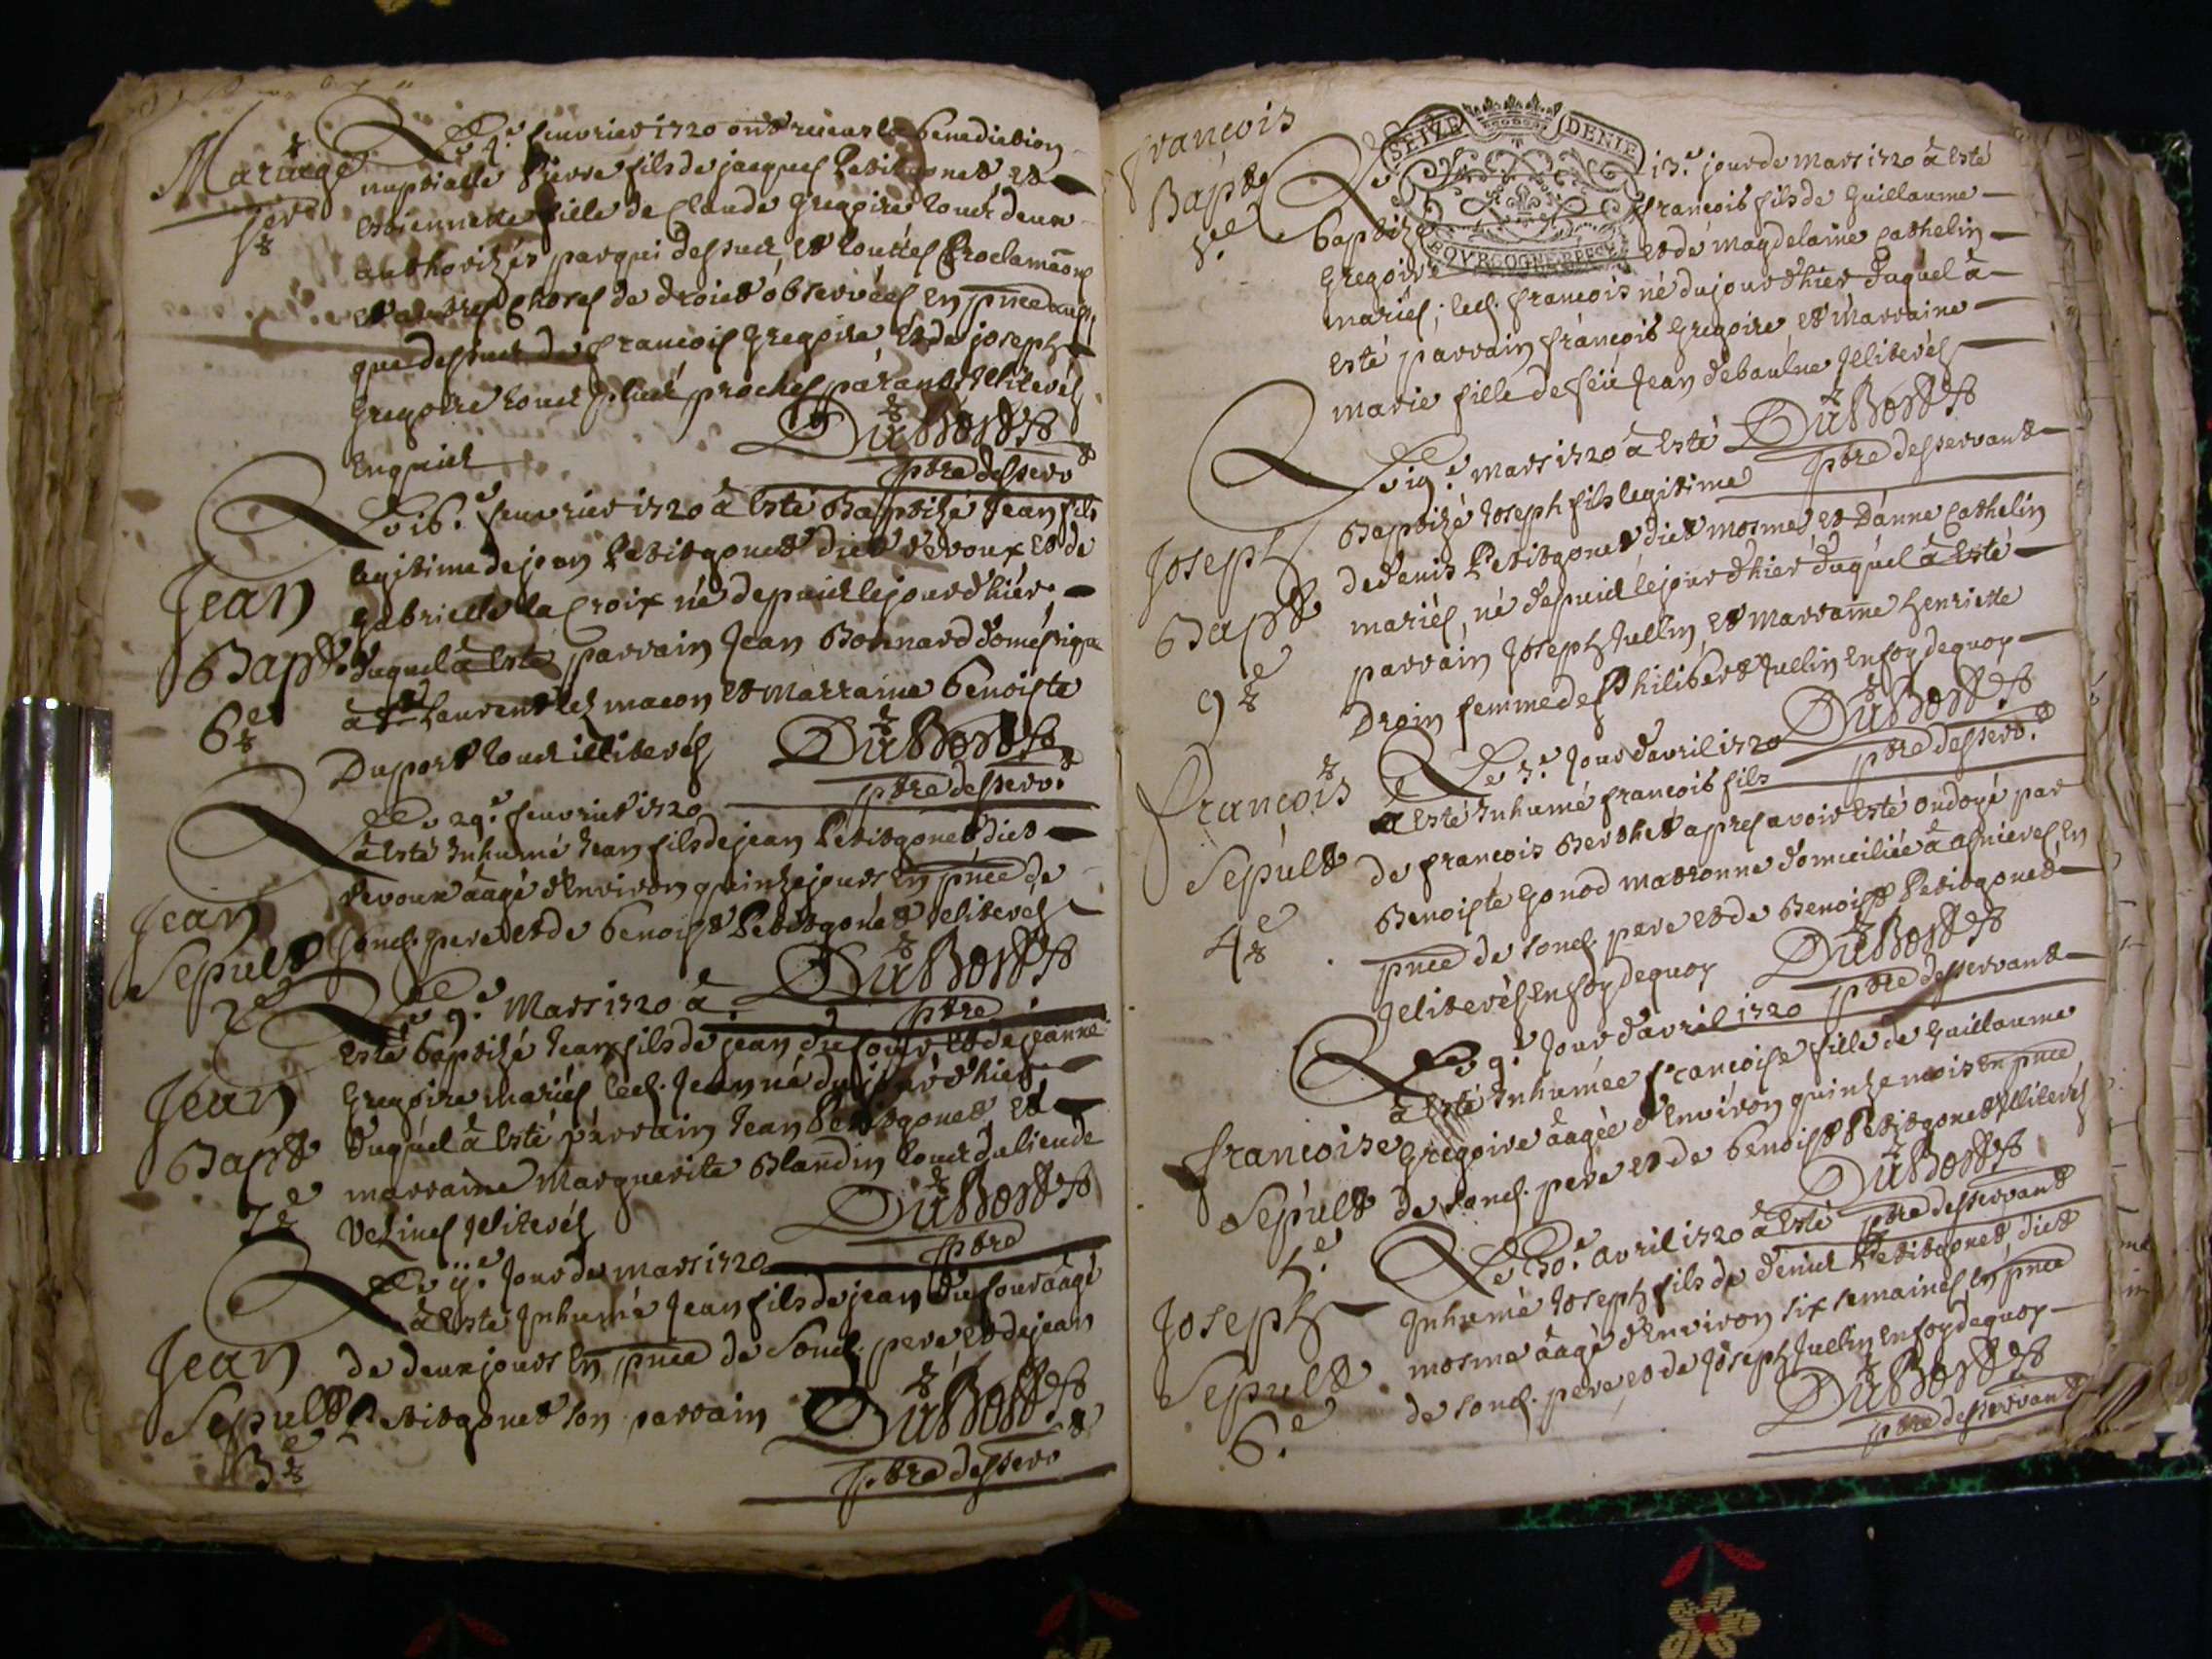 Mariage
1er
Le 4e feuvrier 1720 ont receus la benediction
nuptialle Pierre fils de jacques Petitgonet et
Estiennette fille de Claude Gregoire tous deux
authorizés par qui dessus et toutes Proclamãons
et autres choses de droict observées En pnce
que dessus de francois Gregoire et de joseph
Gregoire tous plus proches parants Illiterés
Enquis
DuBost
ptre desserv
Jean
Bapt
6e
Le 16e feuvrier 1720 a Esté Baptizé Jean fils
legitime de jean Petitgonet dict devoux et de
Gabrielle la Croix né depuis le jour d'hier
duquel a Esté parrain Jean Bonnard domestique
a St Laurent lez macon et Marraine benoiste
Duport tous illiterés
DuBost
ptre desservt
Jean
Sepult
2e
Le 29e feuvrier 1720
a Esté Inhumé Jean fils de jean Petitgonet dict
devoux aagé d'Environ quinze jours En pnce de
sond. pere et de benoist Petitgonet Illiterés
DuBost
ptre
Jean
Bapt
7e
Le 9e Mars 1720 a
Esté baptizé Jean fils de jean du four et de jeanne
Gregoire mariés led. Jean né du jour d'hier
duquel a Esté parrain Jean Petitgonet et
marraine Marguerite Blandin tous du lieu de
Vezines Illiterés
DuBost
ptre
Jean
Sepult
3e
Le ije Jour de mars 1720
a Esté Inhumé Jean fils de jean Du four aagé
de deux jours En pnce de Sond. pere, et de jean
Petitgonet son parrain
DuBost
ptre desservt
francois
Bapt
8e
SEIZE DENIE
BOURGOGNE BRESSE
Le 13e jour de Mars 1720 a Esté
baptizé francois fils de Guillaume
Gregoire et de magdelaine Cathelin
mariés; led. francois né du jour d'hier duquel a
Esté parrain francois Gregoire et Marraine
marie fille de feu Jean debaulne Illiterés
DuBost
ptre desservant
Joseph
Bapt
9e
Le 19e mars 1720 a Esté
Baptizé Joseph fils legitime
de denis Petitgonet dict mosme et Danne Cathelin
mariés, né depuis le jour d'hier duquel a Esté
parrain Joseph Jullin, et Marraine henriette
Droin femme de Philibert Jullin En foy de quoy
DuBost
ptre desservt
francois
Sepult
4e
Le 3e Jour d'avril 1720
a Esté Inhumé francois fils
de francois Berthet apres avoir Esté ondoyé par
Benoiste Gonod matronne domiciliée a asnieres En
pnce de sond. pere et de Benoist Petitgonet
Illiterés En foy de quoy
DuBost
ptre desservant
francoise
Sepult
5e
Le 9e Jour d'avril 1720
a Esté Inhumée francoise fille de Guillaume
Gregoire aagée d'Environ quinze mois En pnce
de sond. pere et de benoist Petitgonet Illiterés
DuBost
ptre desservant
Joseph
Sepult
6e
Le 30e avril 1720 a Esté
Inhumé Joseph fils de denis Petitgonet dict
mosme aagé d'Environ six semaines En pnce
de sond. pere, et de Joseph Jullin En foy de quoy
DuBost
ptre desservant